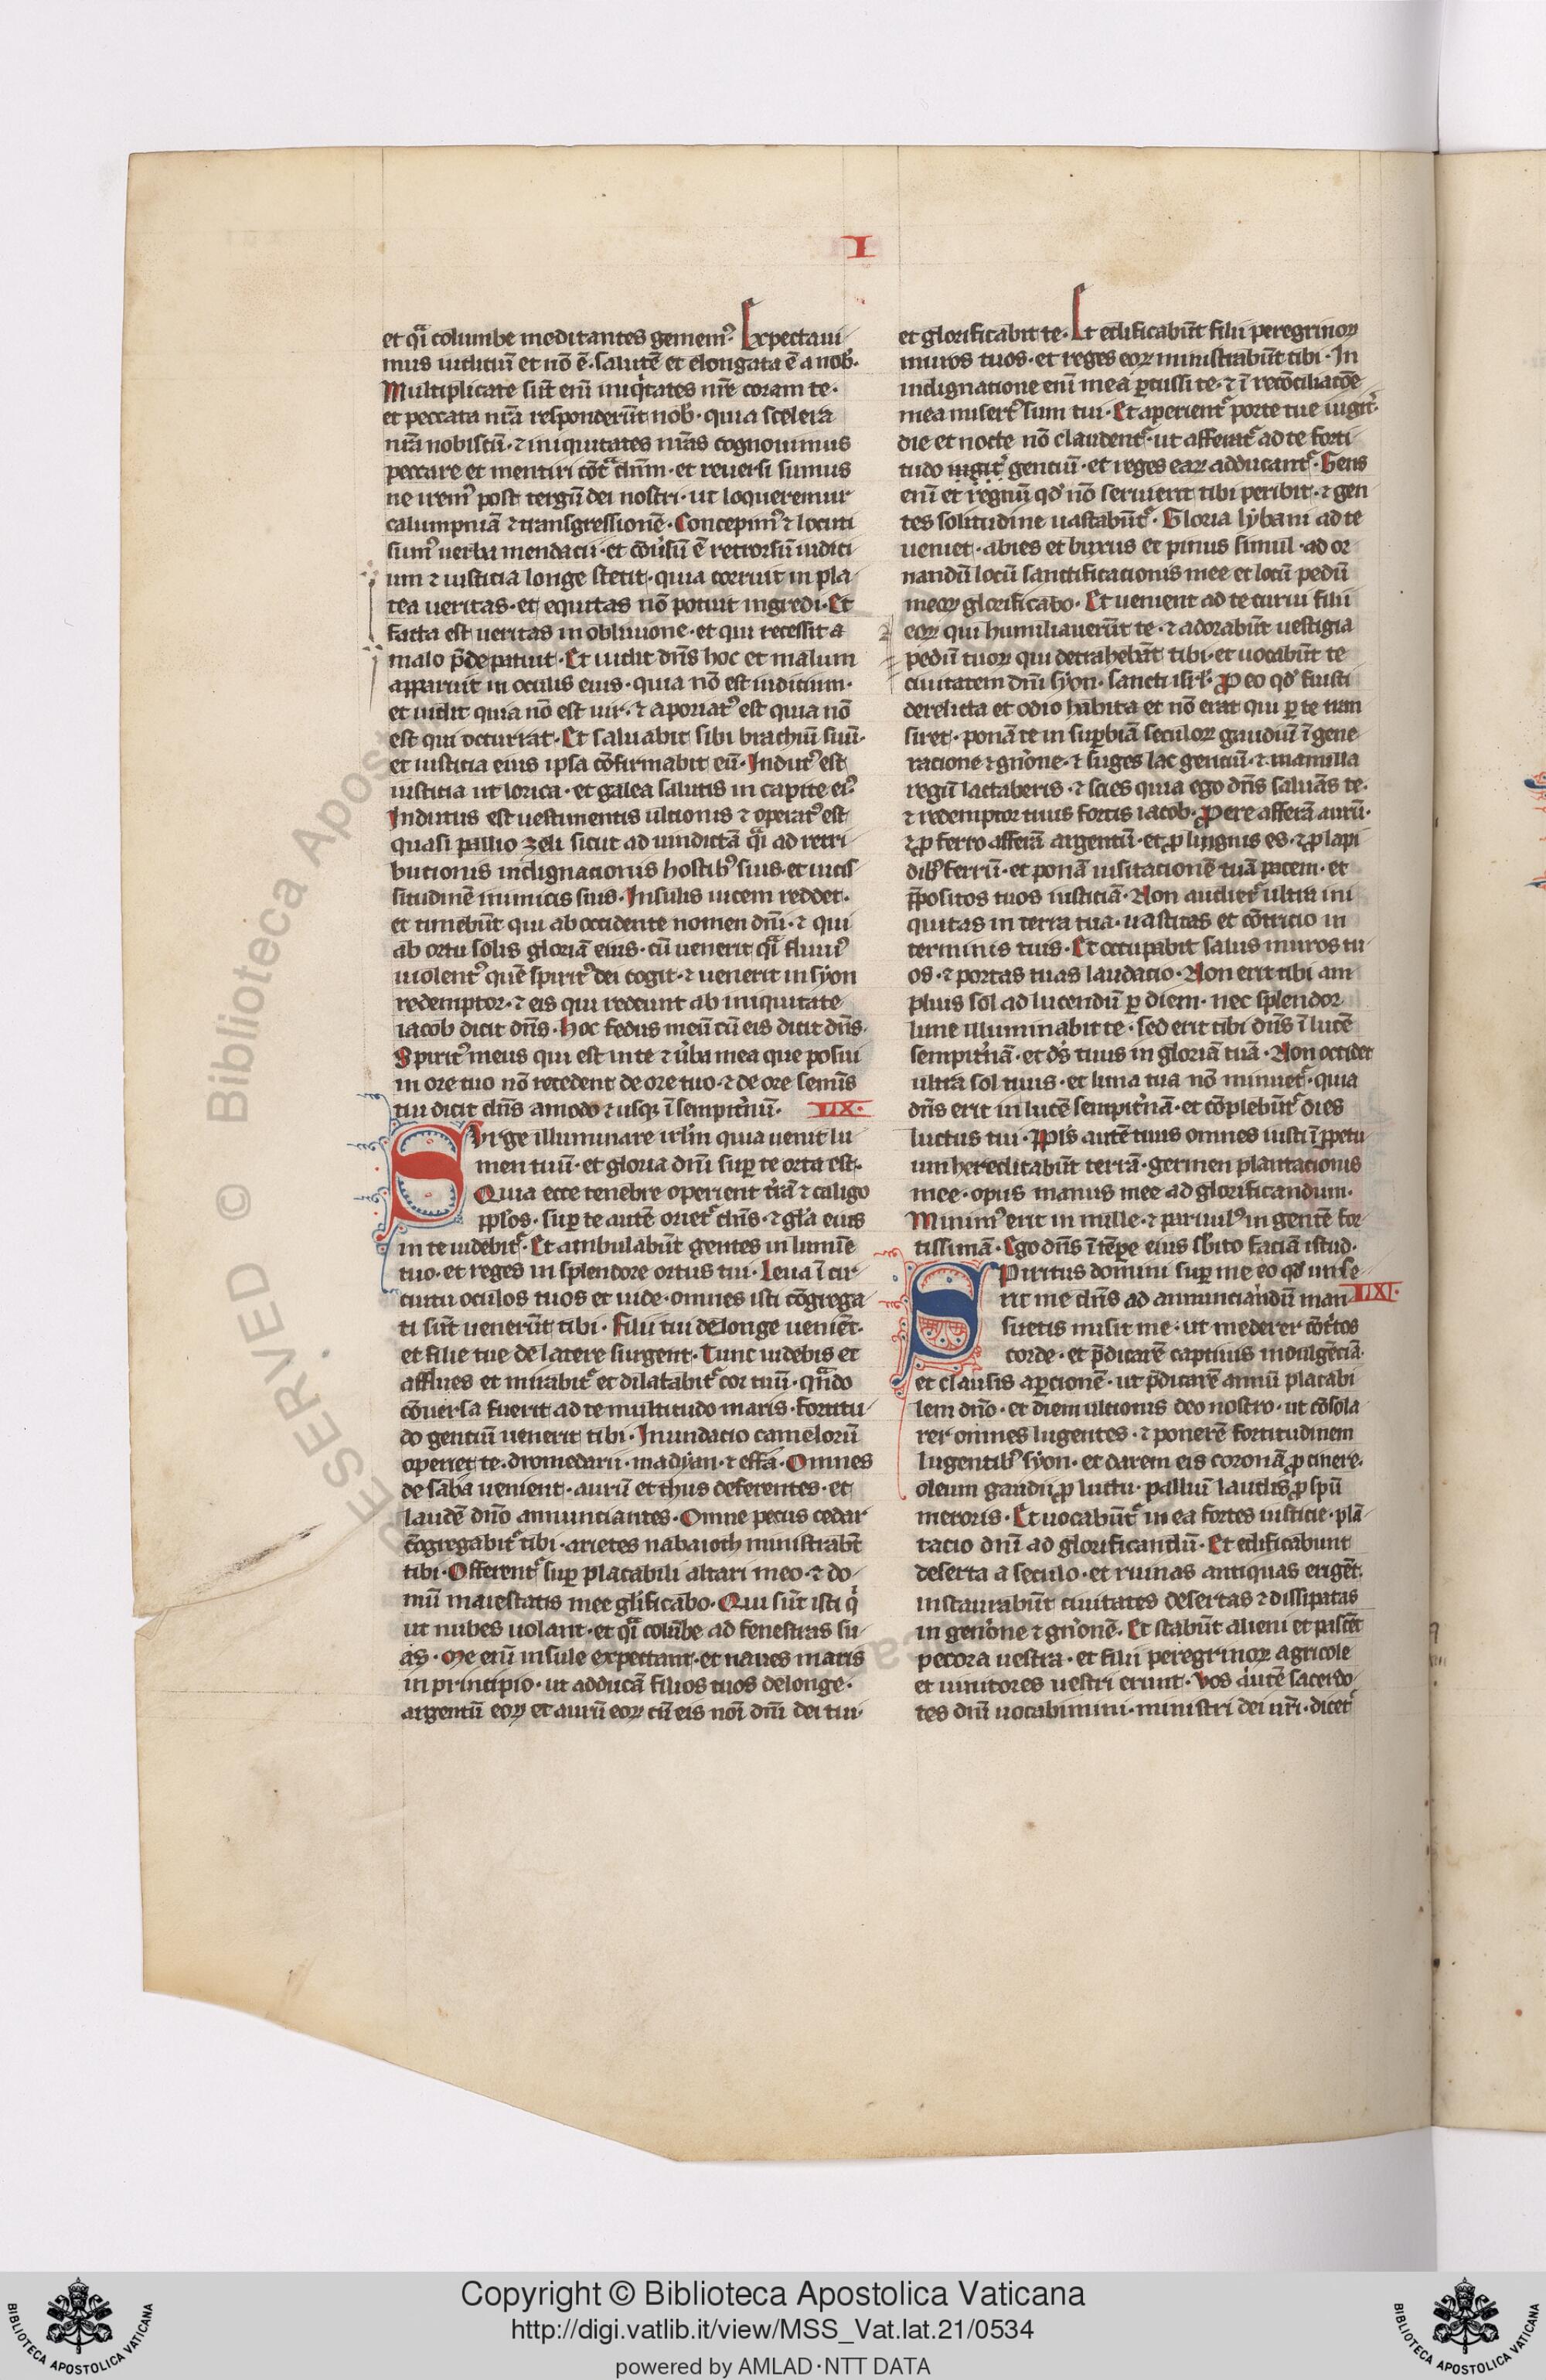 I
et q̄i columbe meditantes gemem⁹. Expectaui
mus iudiciū et nō ē. salutē et elongata ē a nob̄.
Multiplicate sūt enī iniq̇tates nr̄e coram te.
et peccata nr̄a responderūt nob̄. quia scelera
nr̄a nobiscū. ⁊ iniquitates nr̄as cognouimus
peccare et mentiri cōtᵃ dn̄m. et reuersi sumus
ne irem⁹ post tergū dei nostri. ut loqueremur
calumpniā ⁊ transgressionē. Concepim⁹ ⁊ locuti
sum⁹ uerba mendacii. et cōu̾sū ē retrorsū iudici
um ⁊ iusticia longe stetit. quia corruit in pla
tea ueritas. et equitas nō potuit ingredi. Et
facta est ueritas in obliuione. et qui recessit a
malo p̄de patuit. Et uidit dn̄s hoc et malum
apparuit in oculis eius. quia nō est iudicium.
et uidit quia nō est uir. ⁊ aporiat⁹ est quia nō
est qui occurrat. Et saluabit sibi brachiū suū.
et iusticia eius ipsa cōfirmabit eū. Indut⁹ est
iusticia ut lorica. et galea salutis in capite ei⁹
Indutus est uestimentis ultionis ⁊ opertat⁹ est
quasi pallio zeli sicut ad uindictā q̄i ad retri
butionis indignacionis hostib⁹ suis. et uicis
situdinē inimicis suis. Insulis uicem reddet.
et timebūt qui ab occidente nomen dn̄i. ⁊ qui
ab ortu solis gloriā eius. cū uenerit q̄i fluui⁹
uiolent⁹ quē spirit⁹ dei cogit. ⁊ uenerit in syon
redemptor. ⁊ eis qui redeunt ab iniquitate
iacob dicit dn̄s. Hoc fedus meū cū eis dicit dn̄s.
Spirit⁹ meus qui est in te ⁊ u̾ba mea que posui
in ore tuo nō recedent de ore tuo. ⁊ de ore semīs
tui dicit dn̄s amodo ⁊ usq; ī sempit̾nū. LIX.
Surge illuminare irl̄m quia uenit lu
men tuū. et gloria dn̄i sup̱ te orta est.
Quia ecce tenebre operient t̾rā ⁊ caligo
pp̄los. sup̱ te autē oriet᷑ dn̄s. ⁊ gl̄a eius
in te uidebit᷑. Et ambulabūt gentes in lumīe
tuo. et reges in splendore ortus tui. Leua ī cir
cuitu oculos tuos et uide. omnes isti cōgrega
ti sūt uenerūt tibi. Filii tui de longe ueniēt.
et filie tue de latere surgent. Tunc uidebis et
afflues et mirabit᷑ et dilatabit᷑ cor tuū. qn̄do
cōuersa fuerit ad te multitudo maris. fortitu
do gentiū uenerit tibi. Inundacio camelorū
operiet te. dromedarii. madyan. ⁊ effa. Omnes
de saba uenient. aurū et thus deferentes. et
laudē dn̄o annunciantes. Omne pecus cedar
cōgregabit᷑ tibi. arietes nabaioth ministrab̄t
tibi. Offerent᷑ sup̱ placabili altari meo. ⁊ do
mū maiestatis mee gl̾ificabo. Qui sūt isti q̇
ut nubes uolant. et q̄i colūbe ad fenestras su
as. Me enī insule expectant. et naues maris
in principio. ut adducā filios tuos de longe.
argentū eoꝝ et aurū eoꝝ cū eis noī dn̄i dei tui.
et glorificabit te. Et edificabūt filii peregrinoꝝ
muros tuos. et reges eoꝝ ministrabūt tibi. In
indignatione enī mea ꝑcussi te. ⁊ ī recōciliacōe
mea misert⁹ sum tui. Et aperient᷑ porte tue iugit̾.
die et nocte nō claudent᷑. ut afferat᷑ ad te forti
tudo iugit̾ gentiū. et reges eaꝝ adducant᷑. Gens
enī et regnū qd̾ nō seruierit tibi peribit. ⁊ gen
tes solitudine uastabūt᷑. Gloria lybani ad te
ueniet. abies et buxus et pinus simul. ad or
nandū locū sanctificationis mee et locū pedū
meoꝝ glorificabo. Et uenient ad te curui filii
eoꝝ qui humiliauerūt te. ⁊ adorabūt uestigia
pedū tuoꝝ qui detrahebāt tibi. et uocabūt te
ciuitatem dn̄i syon. sancti isrl̾. Pro eo qd̾ fuisti
derelicta et odio habita et nō erat qui ꝑ te tran
siret. ponā te in suꝑbiā seculoꝝ gaudiū ī gene
racione ⁊ gn̾one. ⁊ suges lac gentiū. ⁊ mamilla
regū lactaberis. ⁊ scies quia ego dn̄s saluās te.
⁊ redemptor tuus fortis iacob. Pro ere afferā aurū.
⁊ ꝓ ferro afferā argentū. et ꝓ lingnis es. ⁊ ꝓ lapi
dib⁹ ferrū. et ponā uisitacionē tuā pacem. et
p̄positos tuos iusticiā. Non audiet᷑ ultra ini
quitas in terra tua. uastitas et cōtricio in
terminis tuis. Et occupabit salus muros tu
os. ⁊ portas tuas laudacio. Non erit tibi am
plius sol ad lucendū ꝑ diem. nec splendor
lune illuminabit te. sed erit tibi dn̄s ī lucē
sempit̾nā. et ds̄ tuus in gloriā tuā. Non occidet
ultra sol tuus. et luna tua nō minuet᷑. quia
dn̄s erit in lucē sempit̾nā. et cōplebūt᷑ dies
luctus tui. Ppl̄s autē tuus omnes iusti ī ꝑpetu
um hereditabūt terrā. germen plantacionis
mee. opus manus mee ad glorificandum.
Minim⁹ erit in mille. ⁊ paruul⁹ in gentē for
tissimā. Ego dn̄s ī tēpe eius sb̾ito faciā istud.
Spiritus domini suꝑ me eo qd̾ unxe
rit me dn̄s ad annunciandū man LXI.
suetis misit me. ut mederer cōt̾tos
corde. et p̄dicarē captiuis indulgēciā.
et clausis aꝑcionē. ut p̄dicarē annū placabi
lem dn̄o. et diem ultionis deo nostro. ut cōsola
rer omnes lugentes. ⁊ ponerē fortitudinem
lugentib⁹ syon. et darem eis coronā ꝓ cinere.
oleum gaudii ꝓ luctu. palliū laudis ꝓ sp̄ū
meroris. Et uocabūt᷑ in ea fortes iusticie. plā
tacio dn̄i ad glorificandū. Et edificabunt
deserta a seculo. et ruinas antiquas erigēt.
instaurabūt ciuitates desertas ⁊ dissipatas
in gen̾one ⁊ gn̾onē. Et stabūt alieni et pascēt
pecora uestra. et filii peregrinoꝝ agricole
et uinitores uestri erunt. Vos autē sacerdo
tes dn̄i uocabimini. ministri dei ur̄i. dicet᷑
© Biblioteca Apos
RESERVED
Copyright © Biblioteca Apostolica Vaticana
http://digi.vatlib.it/view/MSS_Vat.lat.21/0534
powered by AMLAD·NTT DATA
BIBLIOTECA APOSTOLICA VATICANA
BIBLIOTECA APOSTOLICA VATICANA